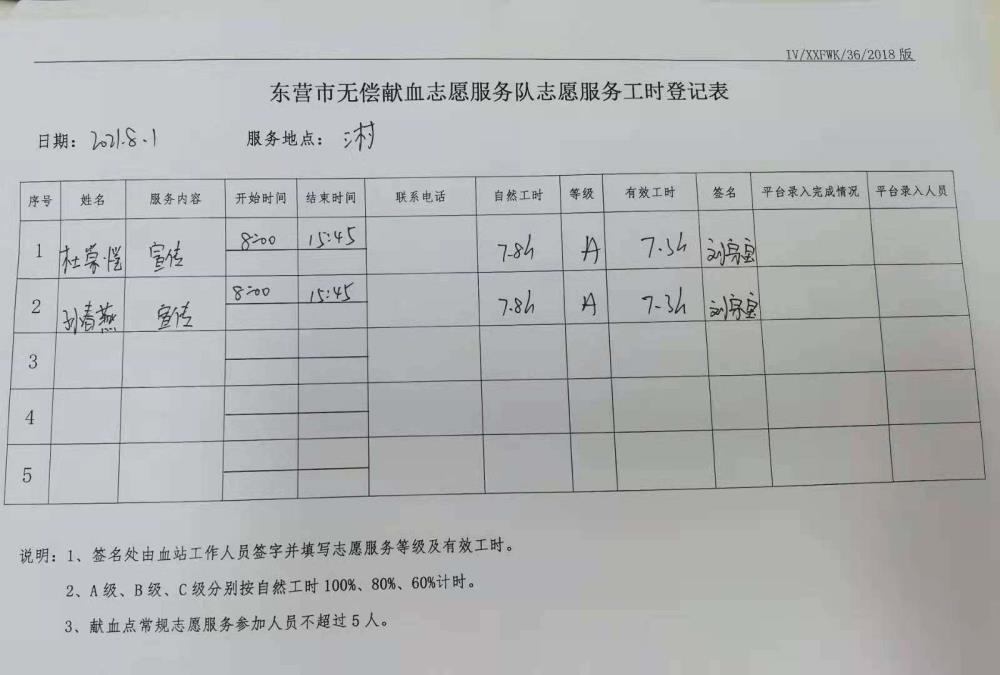 IV/XXFWK/36/2018 版
东营市无偿献血志愿服务队志愿服务工时登记表
日期: 2021.8.1 服务地点:
序号 姓名 服务内容 开始时间 结束时间 联系电话 自然工时 等级 有效工时 签名 平台录入完成情况 平台录入人员
1 杜荣恺 宣传 8:00 15:45 7.8h A 7.3h
2 孙春燕 宣传 8:00 15:45 7.8h A 7.3h
3
4
5
说明: 1、签名处由血站工作人员签字并填写志愿服务等级及有效工时。
2、A 级、B 级、C 级分别按自然工时 100%、80%、60%计时。
3、献血点常规志愿服务参加人员不超过 5 人。